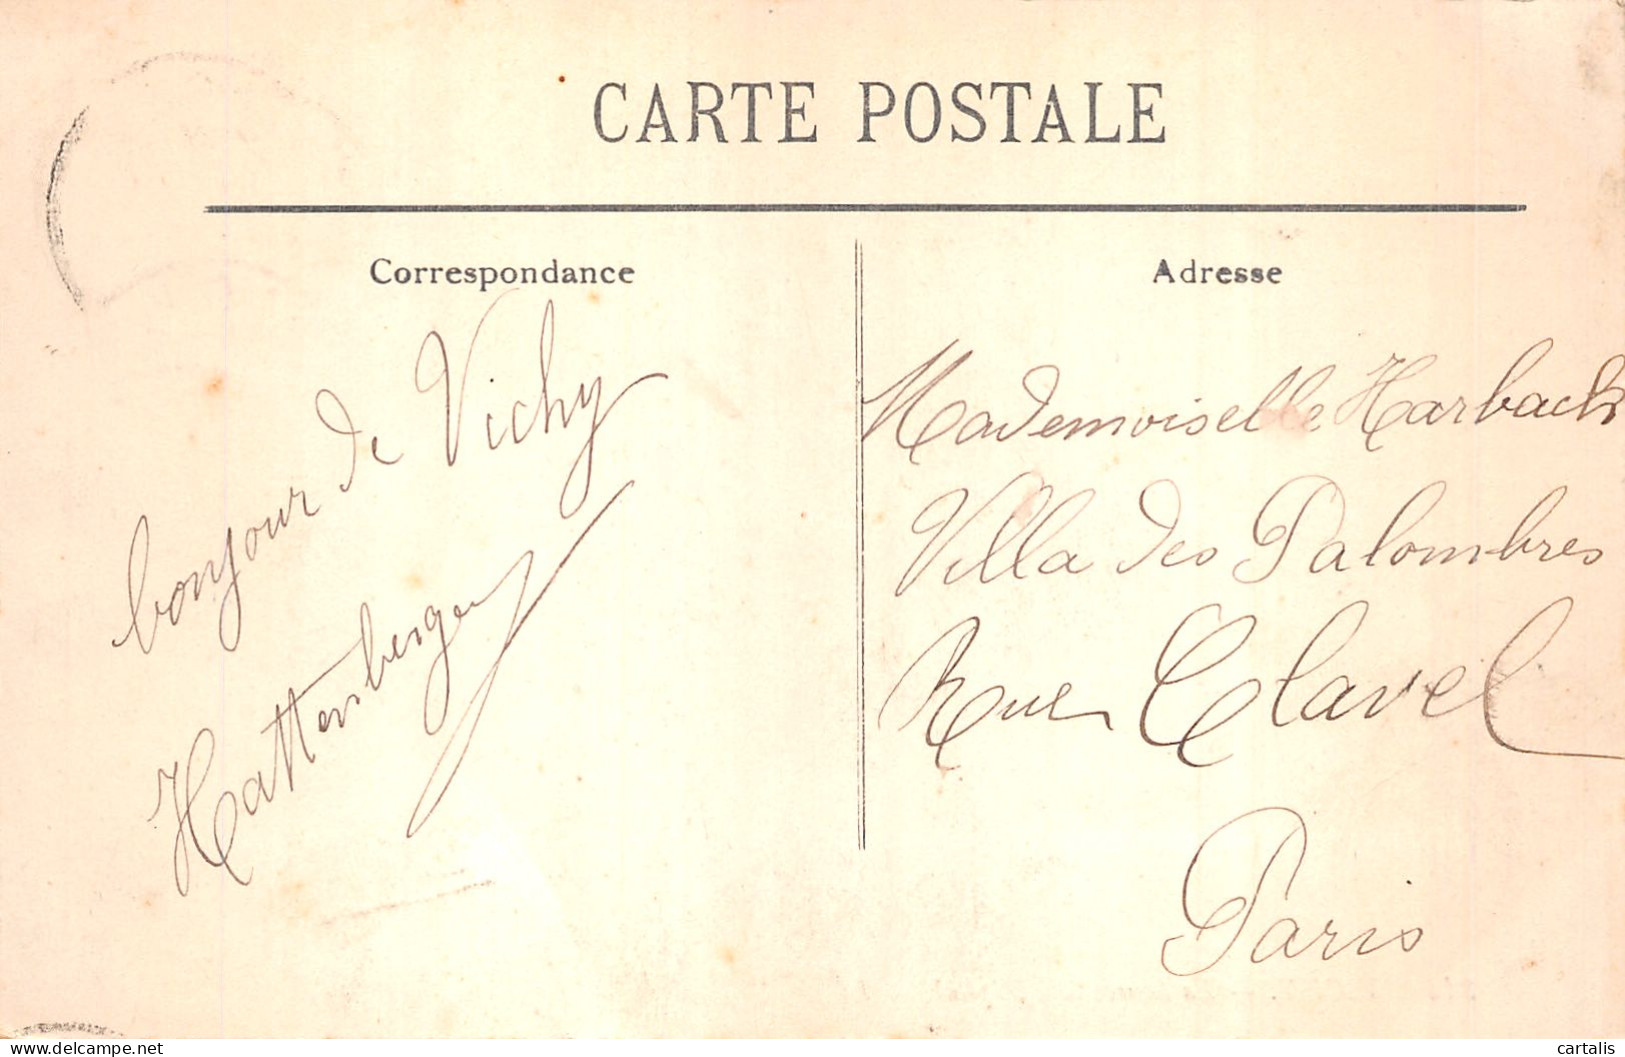 CARTE POSTALE
Correspondance
bonjour de Vichy
Hattenberger
Adresse
Mademoiselle Harbach
Villa des Palombres
Rue Clavel
Paris
www.delcampe.net
cartalis